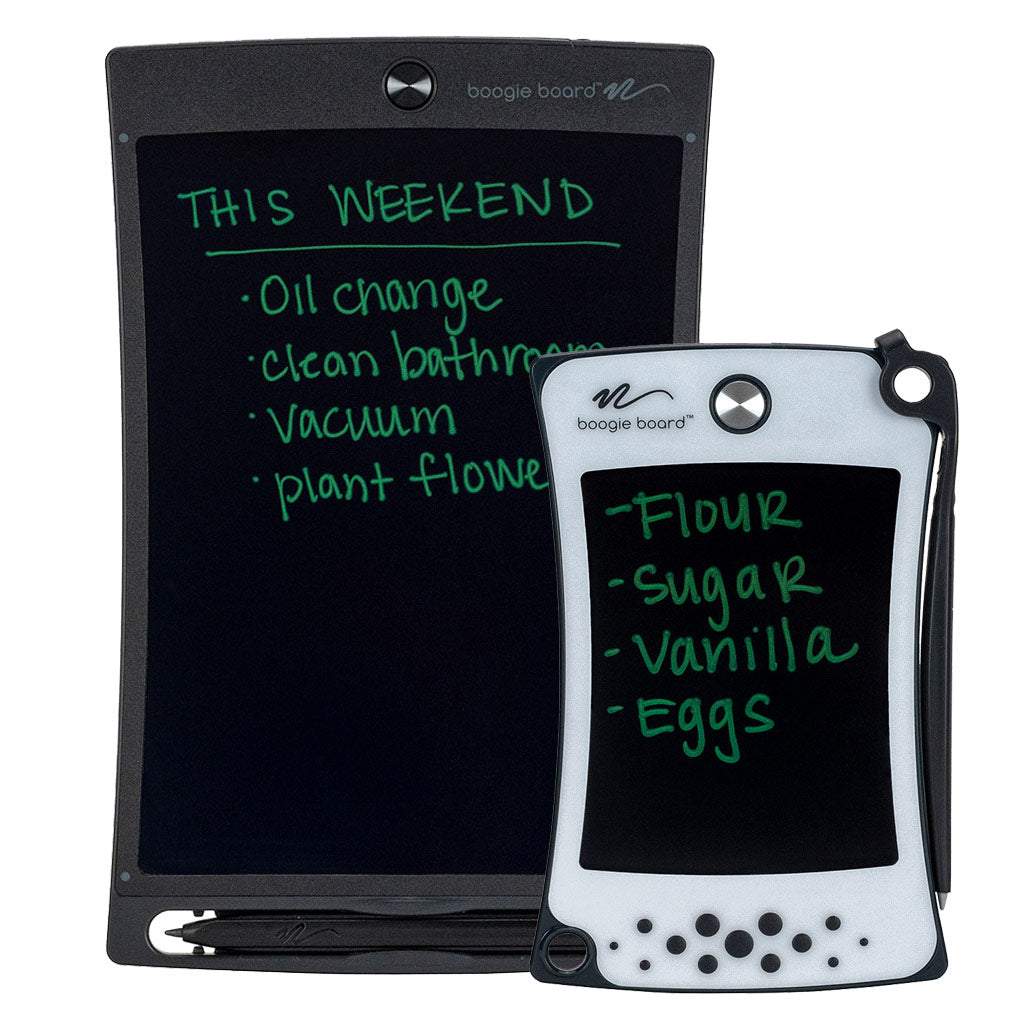 boogie board™
THIS WEEKEND
· Oil change
· clean bathroom
· vacuum
· plant
boogie board™
- Flour
- Sugar
- Vanilla
- Eggs